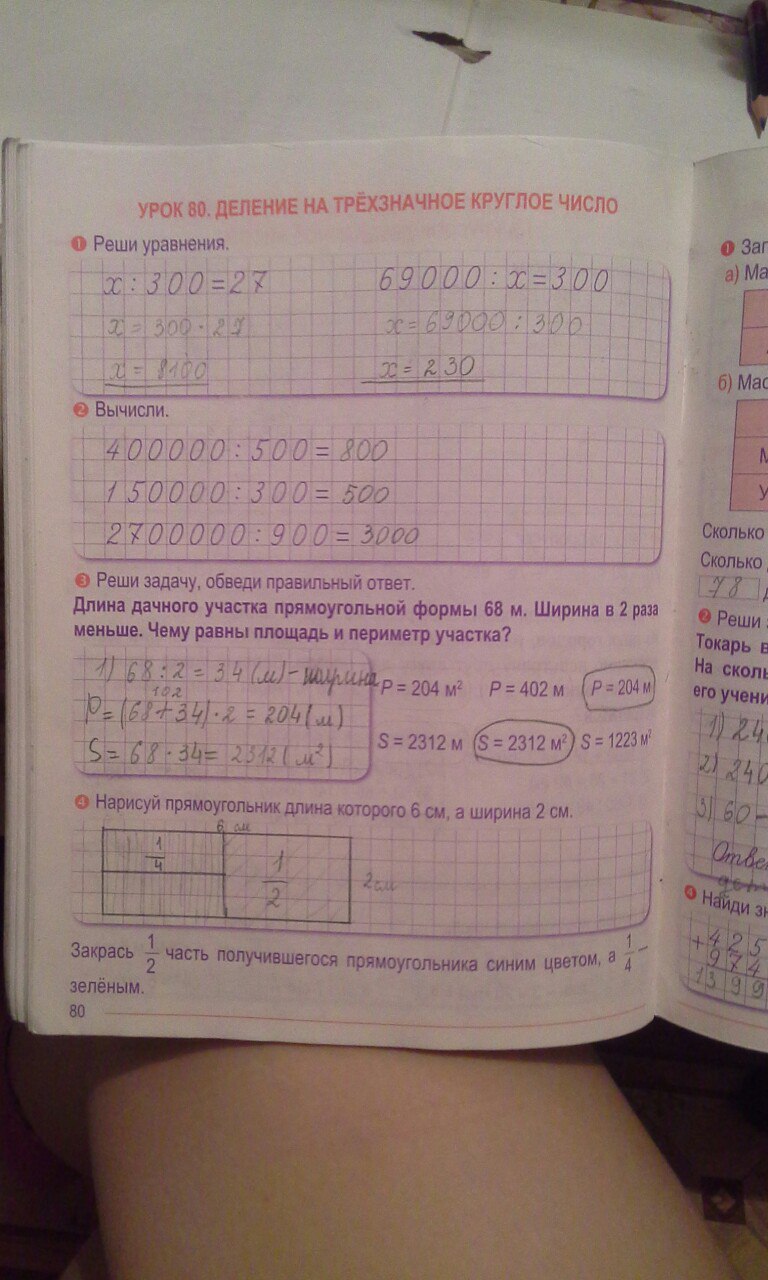 УРОК 80. ДЕЛЕНИЕ НА ТРЁХЗНАЧНОЕ КРУГЛОЕ ЧИСЛО
1 Реши уравнения.
x : 300 = 27 69000 : x = 300
x = 300 · 27 x = 69000 : 300
x = 8100 x = 230
2 Вычисли.
400000 : 500 = 800
150000 : 300 = 500
2700000 : 900 = 3000
3 Реши задачу, обведи правильный ответ.
Длина дачного участка прямоугольной формы 68 м. Ширина в 2 раза
меньше. Чему равны площадь и периметр участка?
1) 68 : 2 = 34 (м) - ширина
102
P = (68 + 34) · 2 = 204 (м)
S = 68 · 34 = 2312 (м²)
P = 204 м² P = 402 м P = 204 м
S = 2312 м S = 2312 м² S = 1223 м²
4 Нарисуй прямоугольник длина которого 6 см, а ширина 2 см.
6 см
1/4 1/2 2 см
Закрась 1/2 часть получившегося прямоугольника синим цветом, а 1/4 –
зелёным.
80
1
а) Ма
б) Мас
М
У
Сколько
Сколько
78
2 Реши
Токарь в
На сколь
его учени
1) 24
2) 240
3) 60 -
Отве
4 Найди зн
+ 425
974
1399